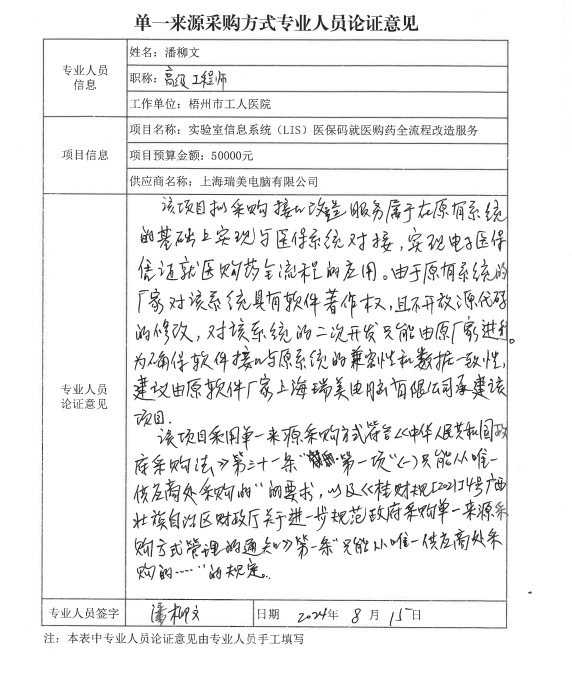 单一来源采购方式专业人员论证意见
专业人员
信息
姓名：潘柳文
职称：高级工程师
工作单位：梧州市工人医院
项目信息
项目名称：实验室信息系统（LIS）医保码就医购药全流程改造服务
项目预算金额：50000元
供应商名称：上海瑞美电脑有限公司
专业人员
论证意见
该项目拟采购接口改造服务属于在原有系统
的基础上实现与医保系统对接，实现电子医保
凭证就医购药全流程的应用。由于原有系统的
厂家对该系统具有软件著作权，且不开放源代码
的修改，对该系统的二次开发只能由原厂家进行。
为确保软件接口与原系统的兼容性和数据一致性，
建议由原软件厂家上海瑞美电脑有限公司承建该
项目．
该项目采用单一来源采购方式符合《中华人民共和国政
府采购法》第三十一条“第一项”（一）只能从唯一
供应商处采购的”的要求，以及《桂财规[2021]4号广西
壮族自治区财政厅关于进一步规范政府采购单一来源采
购方式管理的通知》第一条“只能从唯一供应商处采
购的……”的规定。
专业人员签字
潘柳文
日期
2024年 8 月 15日
注：本表中专业人员论证意见由专业人员手工填写